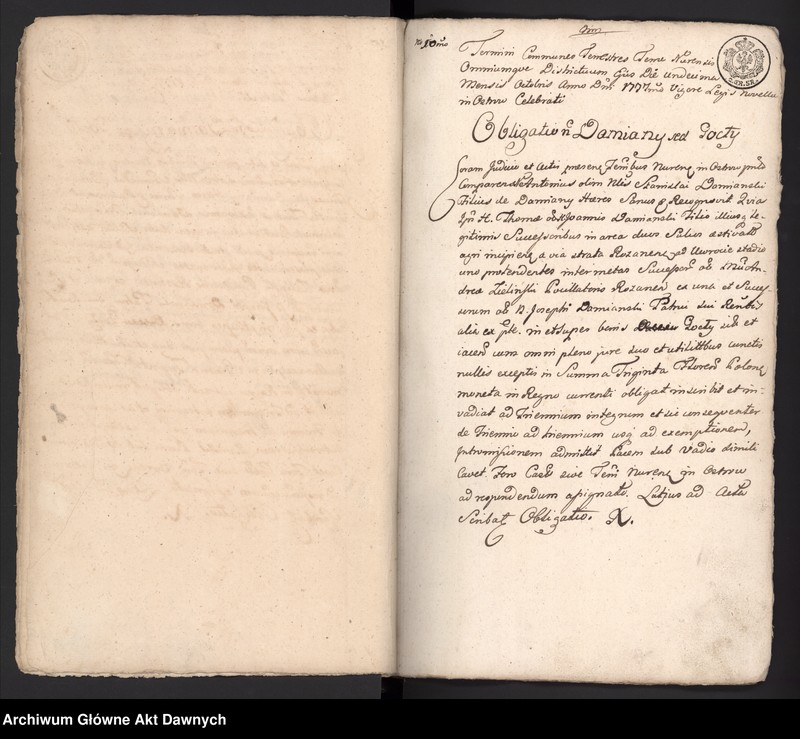 No 10mo
Termini Communes Terrestres Terrae Nurensis
Omniumque Districtuum Ejus Die Undecima
Mensis Octobris Anno Dni 1777mo Vigore Legis Novellae
in Ostrow Celebrati
4 GR. SR.
Obligatio Damiany sed Gocty
Coram Judicio et Actis praesen Tenbus Nuren in Ostrow
Comparens Antonius olim Nlis Stanislai Damianski
Filius de Damiany Haeres Sanus Recognovit Quia
Thomae Joannis Damianski Filio illius le-
gitimis Successoribus in area duos Sulcos
agri incipien a via strata Rozanen stadio
uno protendentes inter metas Successor An-
drea Zielinski Pocillatoris Rozanen ex una et Succes-
sorum olim Josephi Damianski Patrui sui
alia ex pte. in et super bonis Gocty sit et
jacen cum omni pleno jure suo et utilittbus cunctis
nullis exceptis in Summa Triginta Floren Polon
moneta in Regno currenti obligat inscribit et in-
vadiat ad Triennium integrum et sic consequenter
de Triennio ad triennium usq ad exemptionem,
Intromissionem admittit Pacem sub Vadio dimitti
Cavet. Foro Castr sive Terr Nuren in Ostrow
ad respondendum assignato. Latius ad Acta
Scribat Obligatio. X.
Archiwum Główne Akt Dawnych